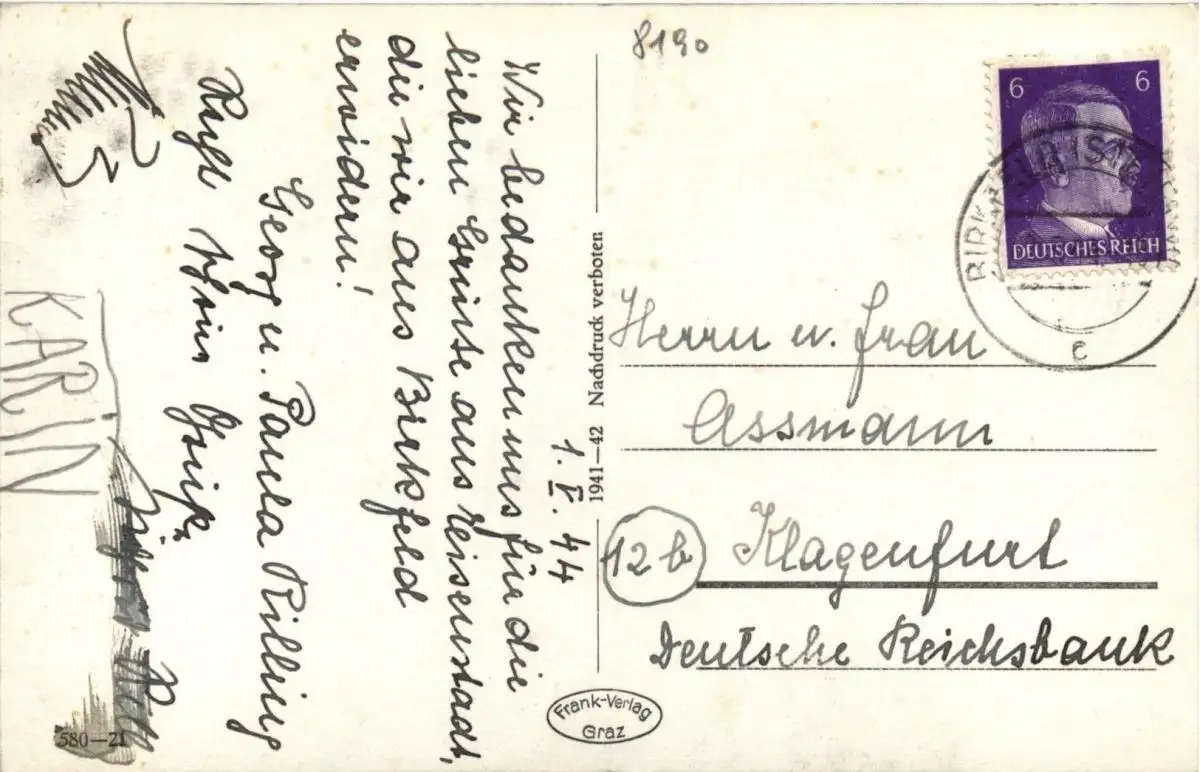 8190
6 6
DEUTSCHES REICH
BIRK
c
1. V. 44
Wir bedanken uns für die
lieben Grüsse aus Eisenstadt,
die wir aus Birkfeld
erwidern!
Georg u. Paula Rilling
KARIN
1941—42 Nachdruck verboten
Herrn u. Frau
Assmann
12b Klagenfurt
Deutsche Reichsbank
Frank-Verlag
Graz
580—21